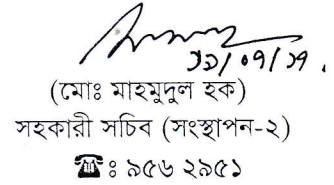 (মোঃ মাহমুদুল হক)
সহকারী সচিব (সংস্থাপন-২)
☎ঃ ৯৫৬ ২৯৫১